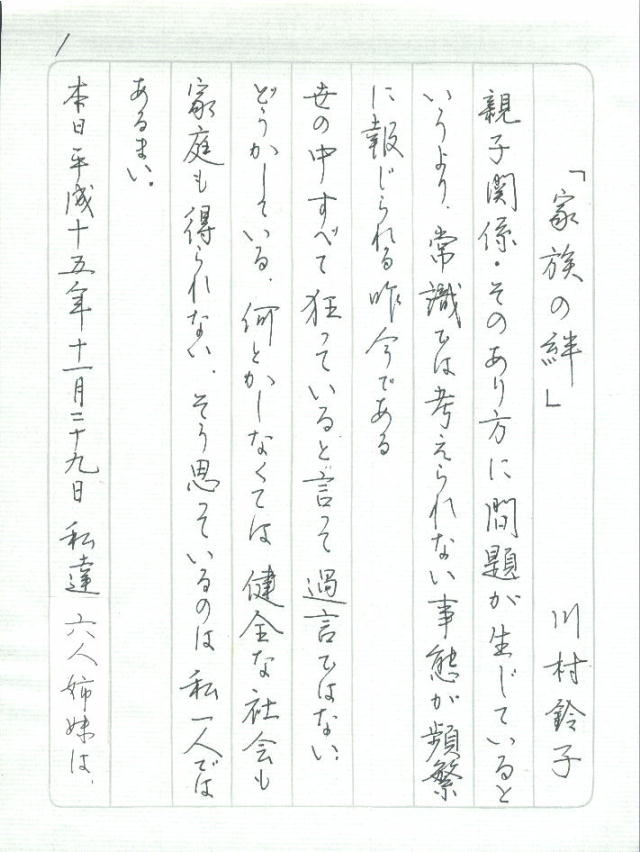 1
「家族の絆」 川村鈴子
親子関係・そのあり方に問題が生じていると
いうより、常識では考えられない事態が頻繁
に報じられる昨今である
世の中すべて狂っていると言って過言ではない
どうかしている、何とかしなくては健全な社会も
家庭も得られない、そう思っているのは私一人では
あるまい。
本日平成十五年十一月二十九日 私達六人姉妹は、